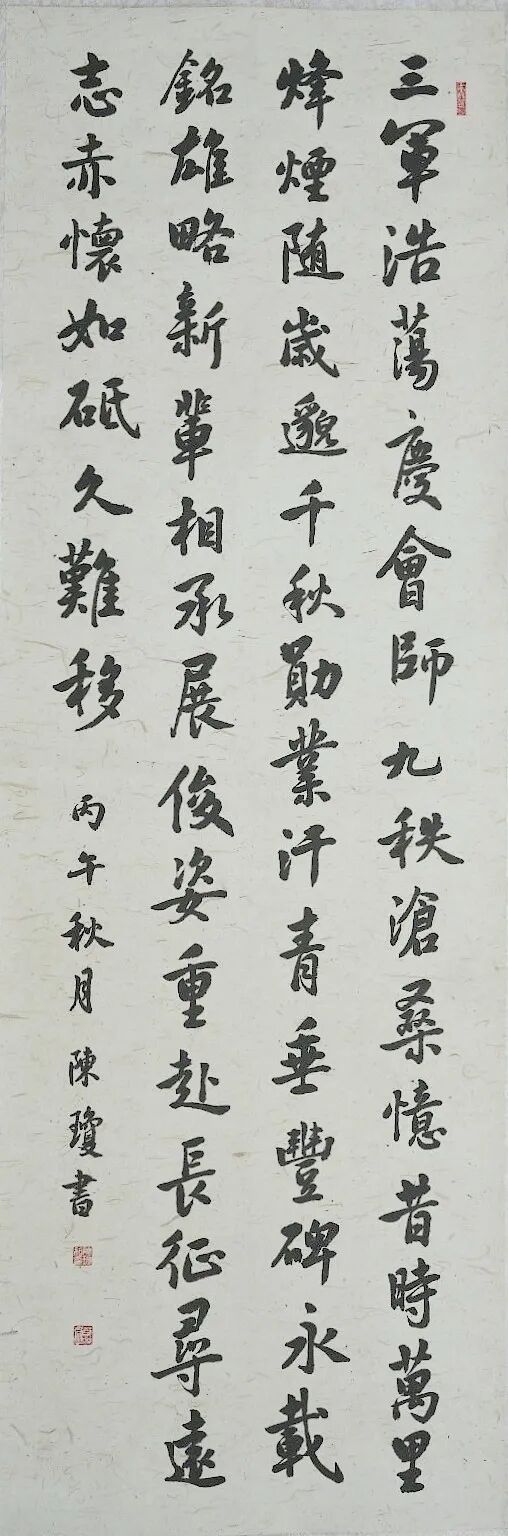 三軍浩蕩慶會師九秩滄桑憶昔時萬里
烽煙随歲邈千秋勛業汗青垂豐碑永載
銘雄略新輩相承展俊姿重赴長征尋遠
志赤懷如砥久難移
丙午秋月陳瓊書